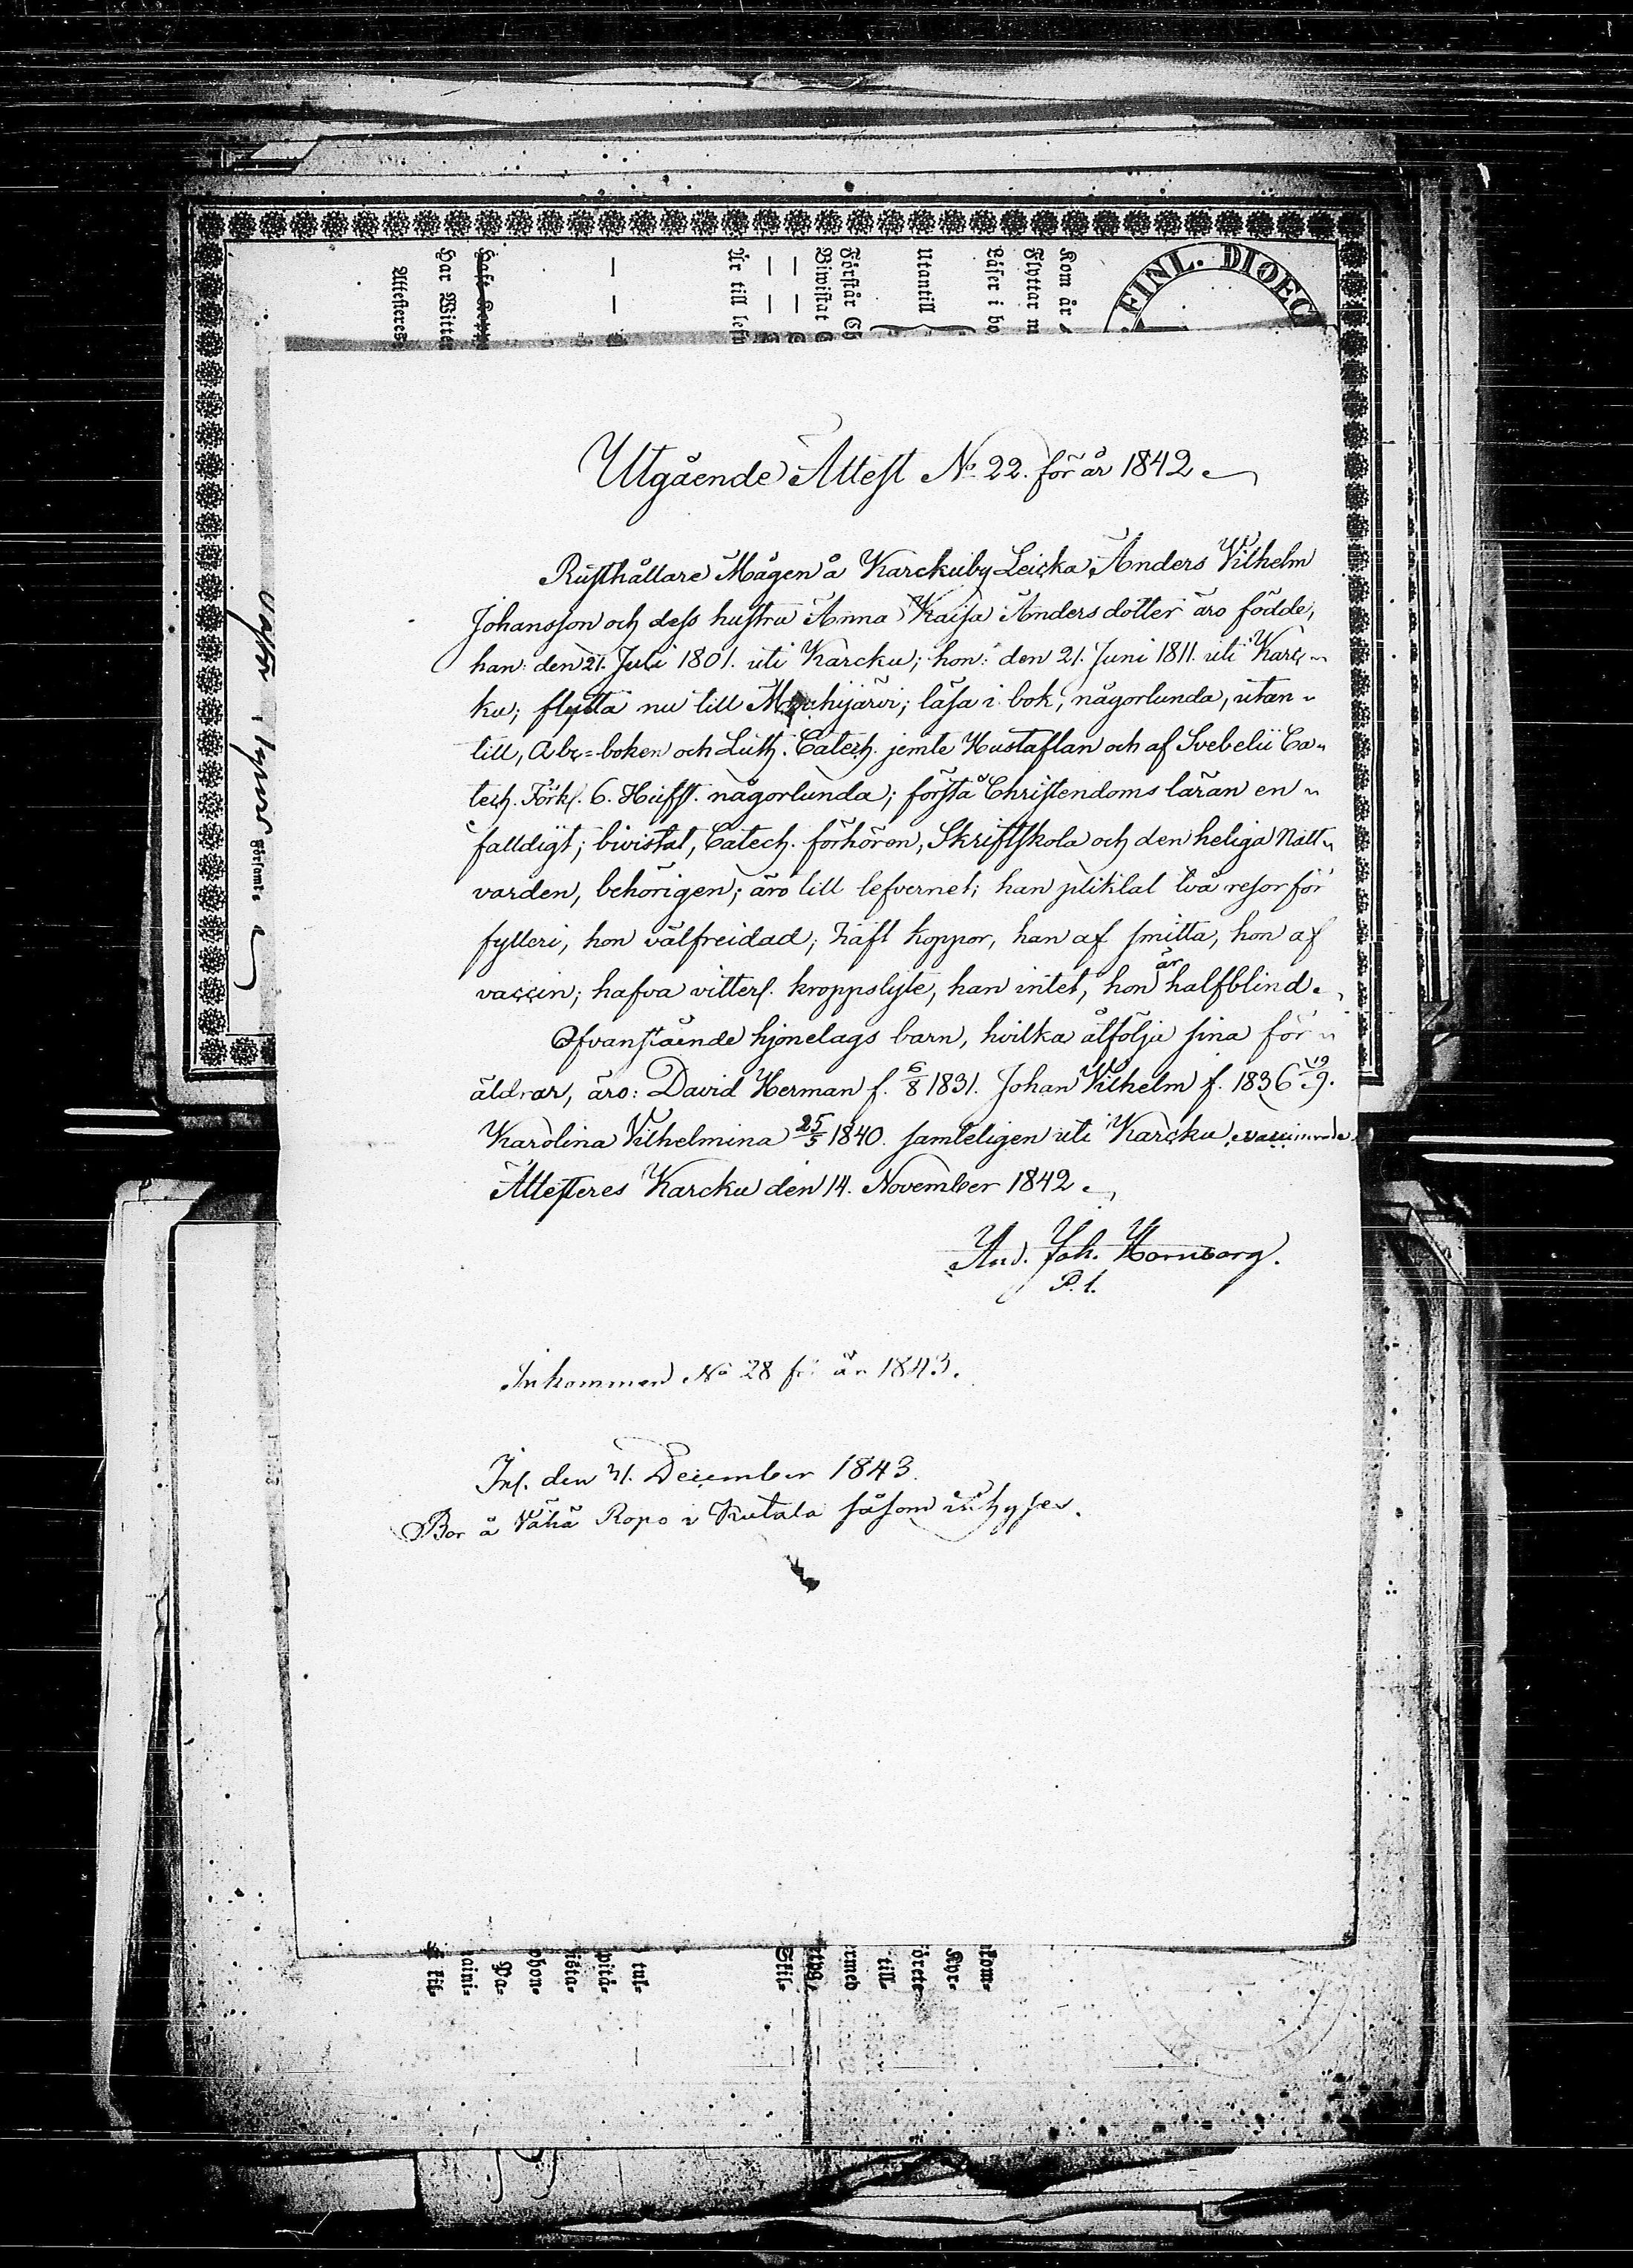 FINL. DIOEC
Kom är
Flyttar m
Läser i bo
Utantill
Förstår Ch
Biwistat C
Är till lefw
Haft Koppo
Har Witter
Attesteres
Församl:
Utgående Attest No 22. för år 1842
Rusthållare Mågen å Karckuby Leicka, Anders Vilhelm
Johansson och dess hustru Anna Kaisa Andersdotter äro födde,
han: den 21. Juli 1801. uti Karcku; hon: den 21. Juni 1811. uti Karc-
ku; flytta nu till Mouhijärvi; läsa i bok, någorlunda, utan-
till, Abc=boken och Luth. Catech. jemte Hustaflan och af Svebelii Ca-
tech. Förkl. 6. Hufst. någorlunda; förstå Christendoms läran en-
falldigt; bivistat, Catech. förhören, Skriftskola och den heliga Natt-
varden, behörigen; äro till lefvernet; han pliktat två resor för
fylleri, hon välfreidad; haft koppor, han af smitta, hon af
vaccin; hafva vitterl. kroppslyte, han intet, hon är halfblind.
Ofvanstående hjonelags barn, hvilka åtfölja sina för-
äldrar, äro: David Herman f. 6/8 1831. Johan Vilhelm f. 1836 19/9.
Karolina Vilhelmina 25/5 1840. samteligen uti Karcku, vaccinerade.
Attesteres Karcku den 14. November 1842
And. Joh. Hornborg.
P. l.
Inkommen No 28 för år 1843.
Inl. den 31. December 1843.
Bor å Vähä Ropo i Kutala såsom inhyses.